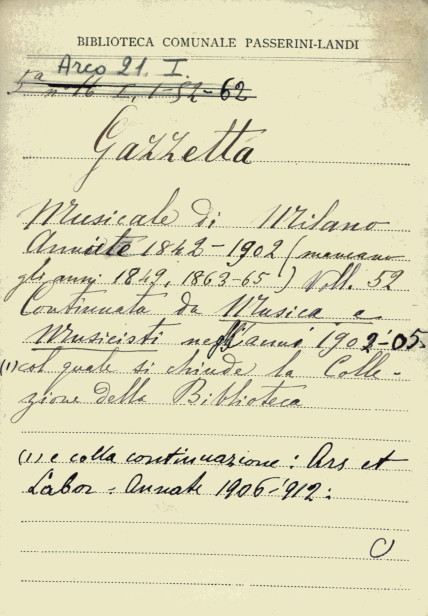 BIBLIOTECA COMUNALE PASSERINI-LANDI
Arco 21. I.
5a n° 16 I, 1-52-62
Gazzetta
Musicale di Milano
Annate 1842-1902 (mancano
gli anni 1849, 1863-65) Voll. 52
Continuata da Musica e
Musicisti negli anni 1902-'05.
(1) col quale si chiude la Colle-
zione della Biblioteca
(1) e colla continuazione: Ars et
Labor - Annate 1906-'912: